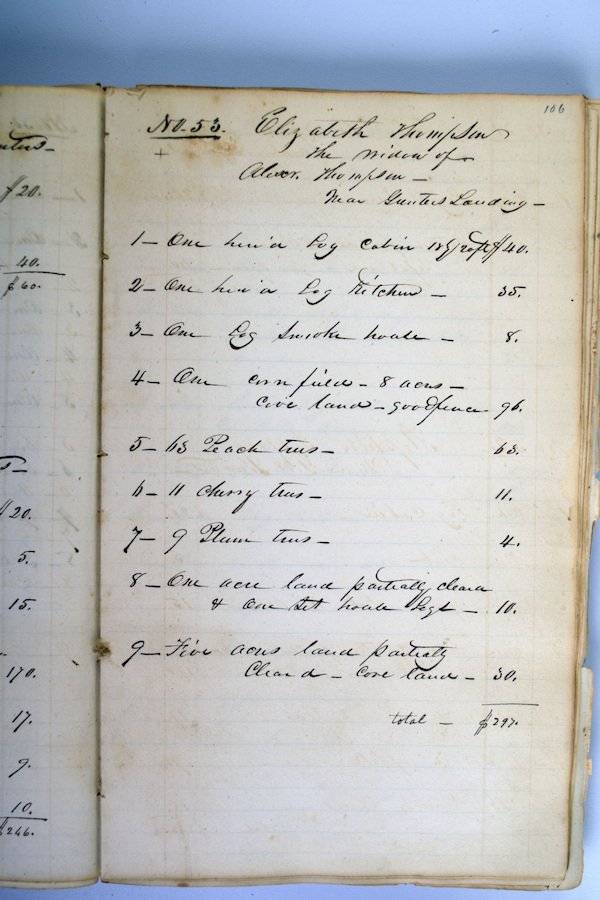 $20.
40.
$60.
$20.
5.
15.
170.
17.
9.
10.
$246.
106
No. 53. Elizabeth Thompson
+ the widow of
Alexr. Thompson —
Near Gunters Landing —
1 — One hew'd Log Cabin 18 by 20 ft $40.
2 — One hew'd Log Kitchen — 35.
3 — One Log Smoke house — 8.
4 — One corn field — 8 acres —
Cove land — good fence 96.
5 — 63 Peach trees — 63.
6 — 11 cherry trees — 11.
7 — 9 Plum trees — 4.
8 — One acre land partially cleard
& One set house Logs — 10.
9 — Five acres land partially
Cleard — Cove land — 30.
total — $297.